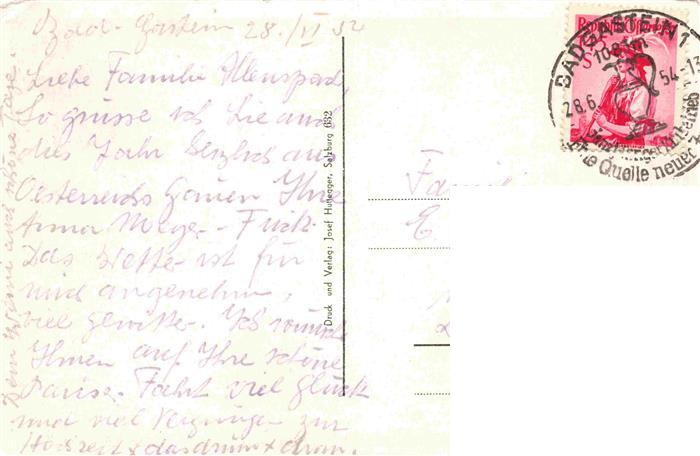 Bad-Gastein 28./VI 52
Liebe Familie
So grüsse ich Sie auch
dies Jahr herzlich aus
Oesterreichs Gauen Ihre
Anna Meyer-Frick
Das Wetter ist für
mich angenehm,
viel gewitter. Ich wünsche
Ihnen auf Ihre schöne
Pariser-Fahrt viel glück
und viel Vergnügen zur
Hochzeit & das drum & dran.
schöne Tage.
Druck und Verlag: Josef Huttegger, Salzburg 632
Republik Österreich
BADGASTEIN 1
1083m
28.6. 54-13
Quelle neuer
Famili
E.